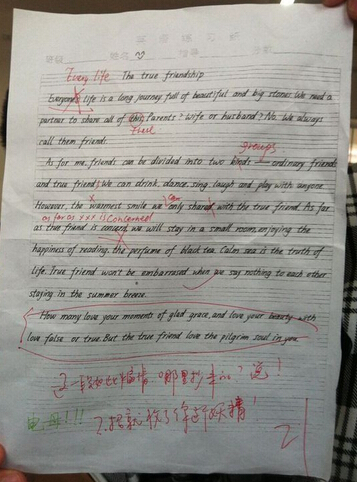 Every life The true friendship
Everyone life is a long journey full of beautiful and big stones. We need a
partner to share all of this. Parents? Wife or husband? No. We always
Feel
call them friends.
groups
As for me, friends can be divided into two kinds — ordinary friends
and true friend. We can drink, dance, sing, laugh and play with anyone.
Can
However, the warmest smile we only shared with the true friend. As far
as far as xxx is concerned
as true friend is concern, we will stay in a small room, enjoying the
happiness of reading, the perfume of black tea. Calm sea is the truth of
life. True friend won't be embarrased when we say nothing to each other
staying in the summer breeze.
How many love your moments of glad grace, and love your beauty with
love false or true. But the true friend love the pilgrim soul in you.
这一段如此煽情，哪里抄来的？说！
2